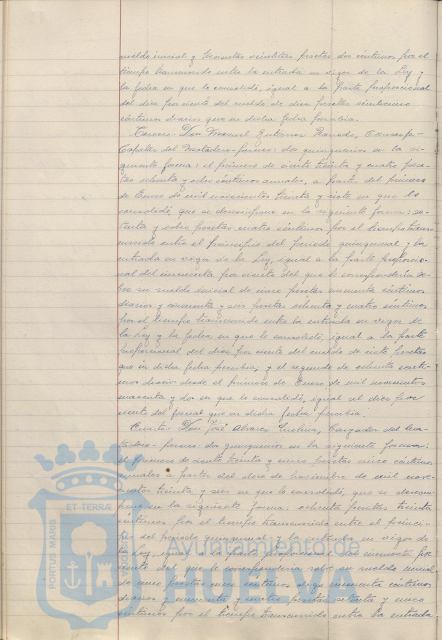 sueldo inicial y trescientas veintitres pesetas dos céntimos por el
tiempo transcurrido entre la entrada en vigor de la Ley y
la fecha en que lo consolidó, igual a la parte proporcional
del diez por ciento del sueldo de diez pesetas veinticinco
céntimos diarios que en dicha fecha percibía.
Tercero: Don Manuel Gutierrez
Capataz del Matadero = primero: dos quinquenios en la si-
guiente forma: el primero de ciento treinta y cuatro pese-
tas ochenta y ocho céntimos anuales, a partir del primero
de Enero de mil novecientos treinta y siete en que lo
consolidó, que se descompone en la siguiente forma: se-
tenta y ocho pesetas cuatro céntimos por el tiempo trans-
currido entre el principio del periodo quinquenal y la
entrada en vigor de la Ley, igual a la parte proporcio-
nal del cincuenta por ciento del que le correspondería so-
bre su sueldo inicial de cinco pesetas cincuenta céntimos
diarios y cincuenta y seis pesetas ochenta y cuatro céntimos
por el tiempo transcurrido entre la entrada en vigor de
la Ley y la fecha en que lo consolidó, igual a la parte
proporcional del diez por ciento del sueldo de siete pesetas
que en dicha fecha percibía, y el segundo de
diario desde el primero de Enero de mil novecientos
cuarenta y dos en que lo consolidó, igual al diez por
ciento del jornal que en dicha fecha percibía.
Cuarto: Don José Alvarez del Ma-
tadero = primero: dos quinquenios en la siguiente forma:
el primero de ciento treinta y cinco pesetas cinco céntimos
anuales a partir del doce de Noviembre de mil nove-
cientos treinta y seis en que lo consolidó, que se descom-
pone en la siguiente forma: ochenta pesetas treinta
céntimos por el tiempo transcurrido entre el princi-
pio del periodo quinquenal y la entrada en vigor de
la Ley, igual a la parte proporcional del cincuenta por
ciento del que le correspondería sobre su sueldo inicial
de cinco pesetas cincuenta céntimos
diarios y cincuenta y cuatro pesetas setenta y cinco
céntimos por el tiempo transcurrido entre la entrada
PORTUS MARIS
ET TERRÆ
Ayuntamiento de
HUELVA